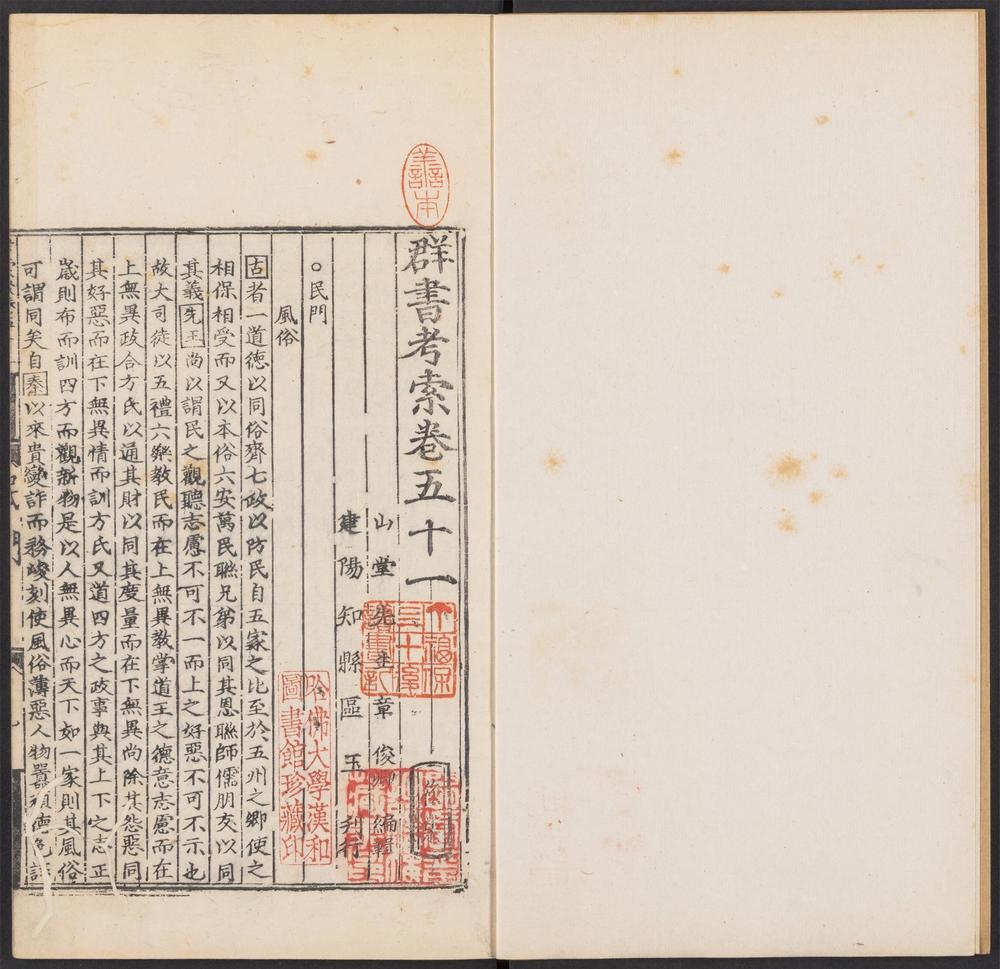 善本
群書考索卷五十一
山堂先生章俊卿編輯
建陽知縣區玉刊行
○民門
風俗
古者一道德以同俗齊七政以防民自五家之比至於五州之鄉使之
相保相受而又以本俗六安萬民聮兄弟以同其恩聮師儒朋友以同
其義先王尚以謂民之觀聽志慮不可不一而上之好惡不可不示也
故大司徒以五禮六樂教民而在上無異教掌道王之德意志慮而在
上無異政合方氏以通其財以同其度量而在下無異尚除其怨惡同
其好惡而在下無異情而訓方氏又道四方之政事與其上下之志正
歲則布而訓四方而觀新物是以人無異心而天下如一家則其風俗
可謂同矣自秦以來貴變詐而務峻刻使風俗薄惡人物嚚頑
哈佛大學漢和
圖書館珍藏印